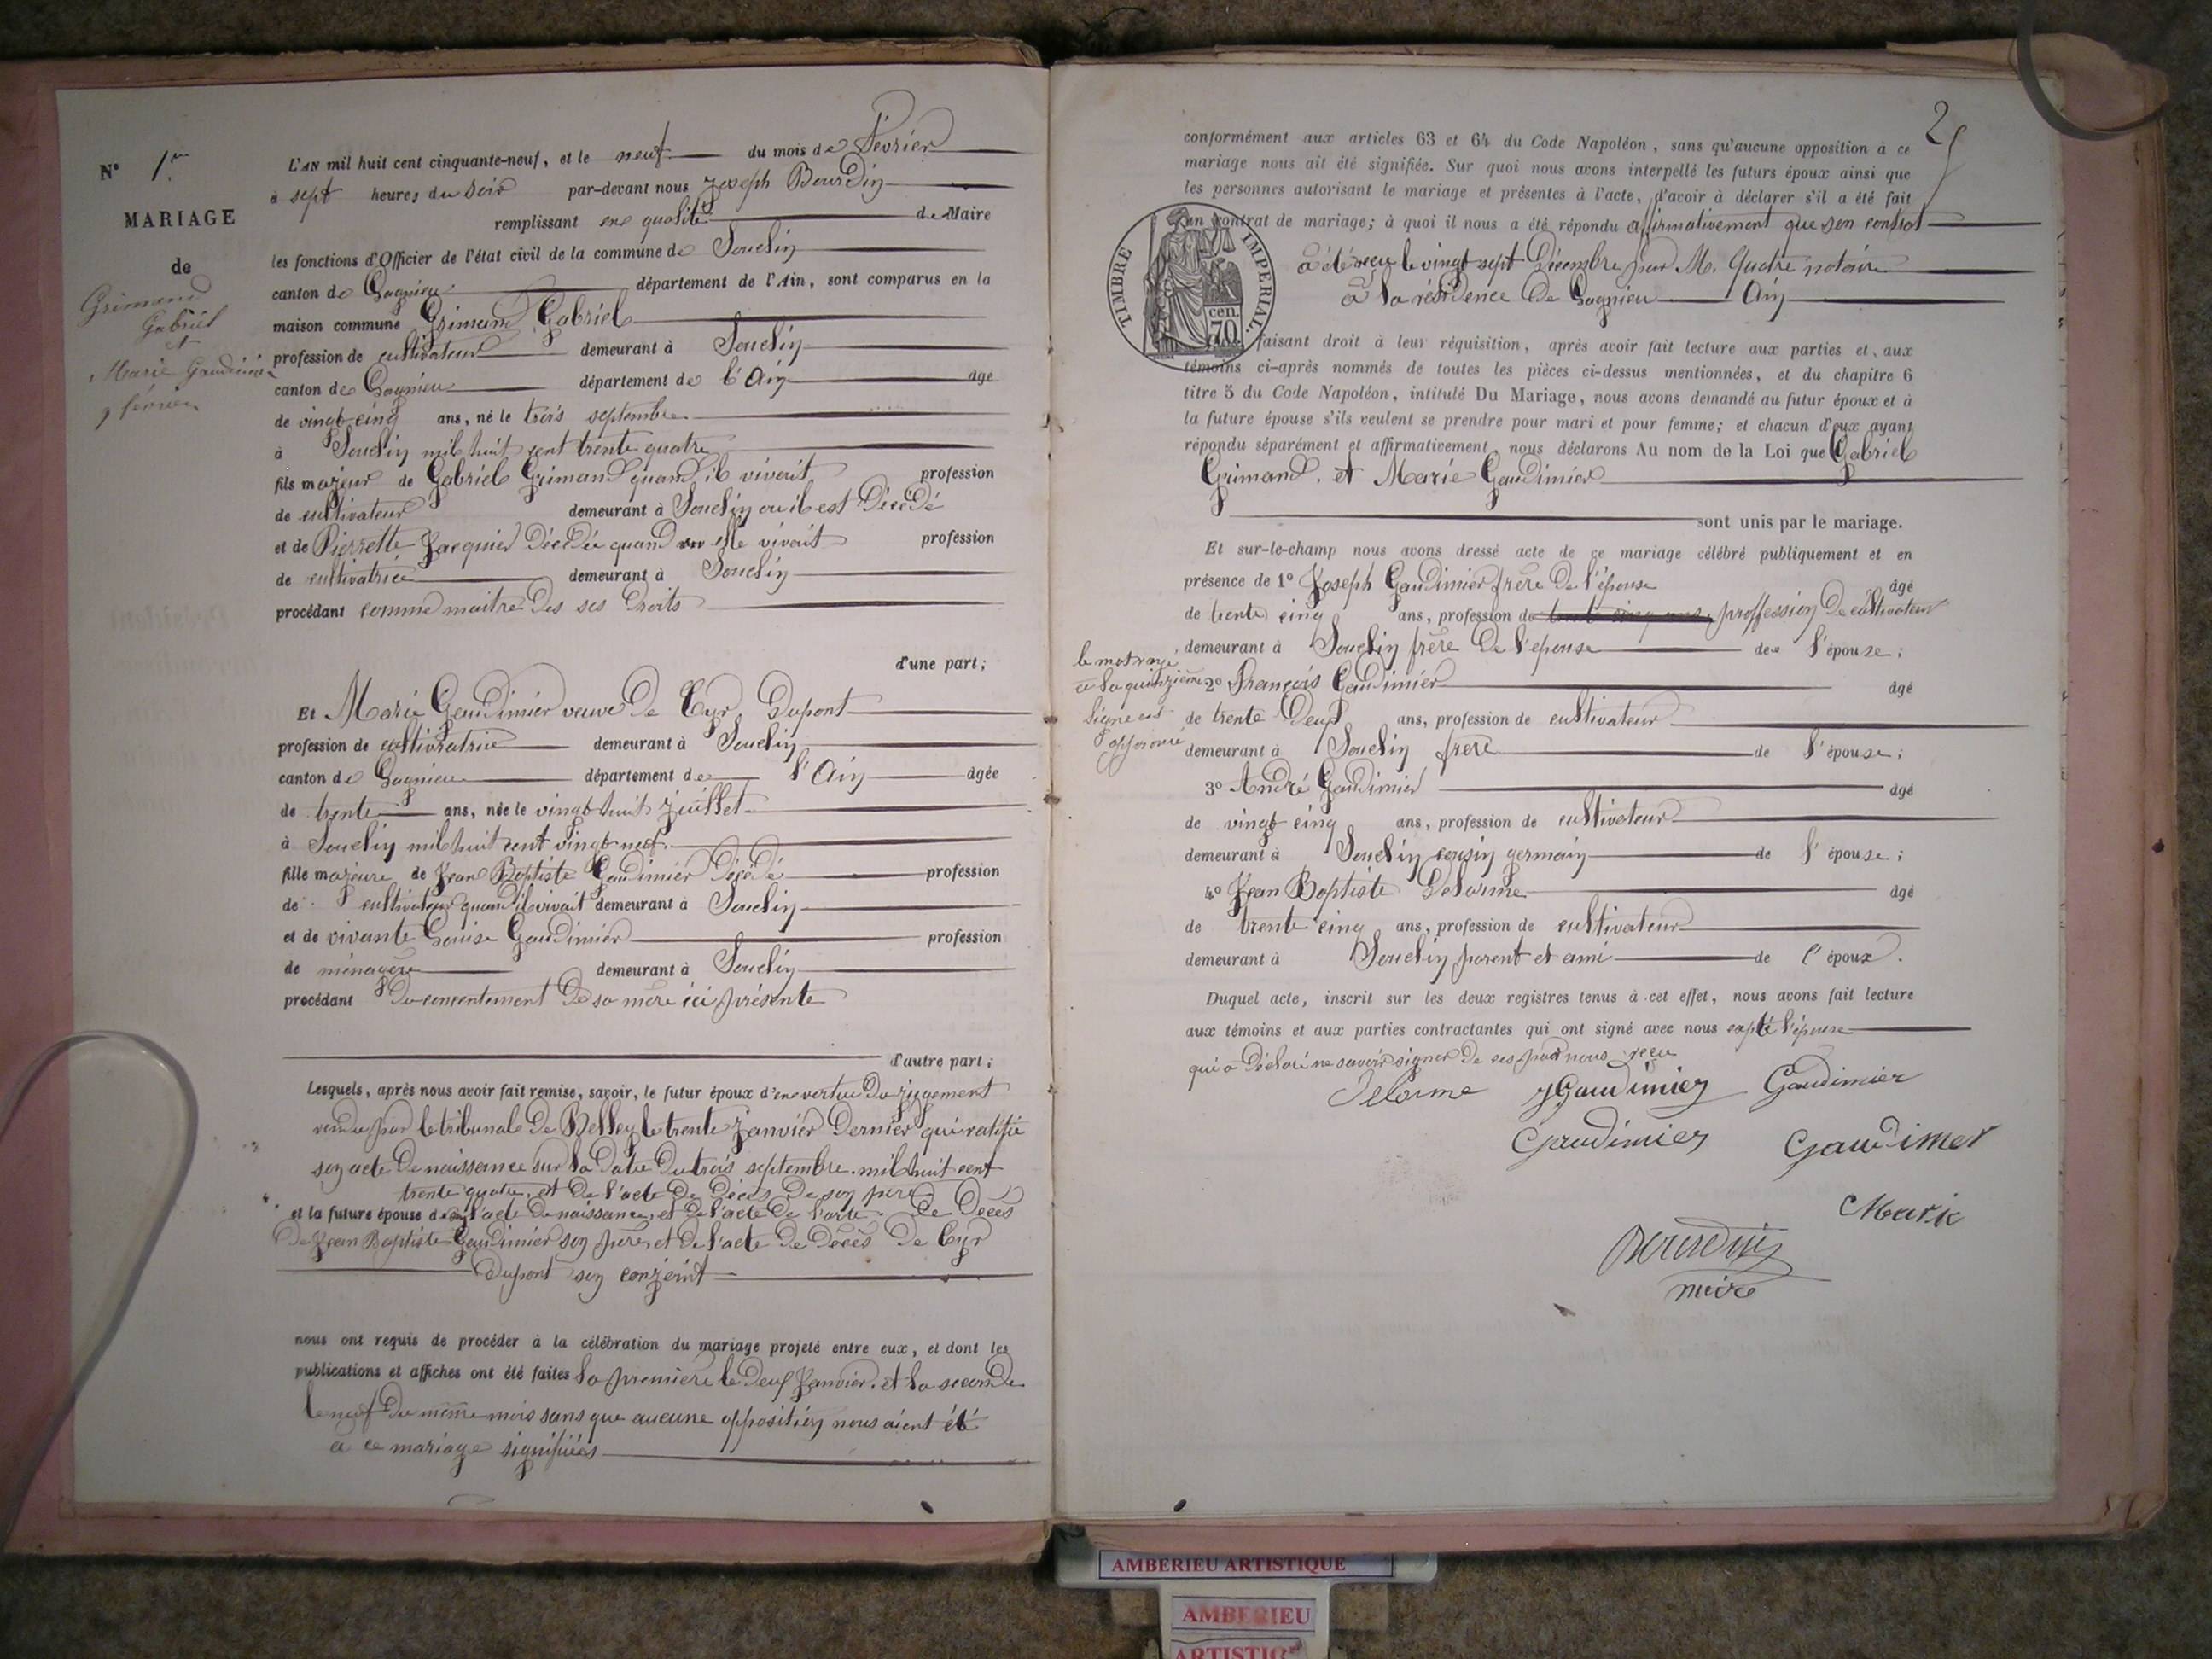 N° 1er
MARIAGE
de
Grimand
Gabriel
et
Marie Gaudimier
9 février
L'AN mil huit cent cinquante-neuf, et le neuf du mois de Février
à sept heures du soir par-devant nous Joseph Bourdin
remplissant en qualité de Maire
les fonctions d'Officier de l'état civil de la commune de Souclin
canton de Lagnieu département de l'Ain, sont comparus en la
maison commune Grimand Gabriel
profession de cultivateur demeurant à Souclin
canton de Lagnieu département de l'Ain âgé
de vingt cinq ans, né le trois septembre
à Souclin mil huit cent trente quatre
fils majeur de Gabriel Grimand quand il vivait profession
de cultivateur demeurant à Souclin ou il est Décédé
et de Pierrette Jacquier Décédée quand elle vivait profession
de cultivatrice demeurant à Souclin
procédant comme maitre des ses Droits
d'une part;
Et Marie Gaudimier veuve de Cyr Dupont
profession de cultivatrice demeurant à Souclin
canton de Lagnieu département de l'Ain âgée
de trente ans, née le vingt huit juillet
à Souclin mil huit cent vingt neuf
fille majeure de Jean Baptiste Gaudimier Décédé profession
de cultivateur quand il vivait demeurant à Souclin
et de vivante Louise Gaudimier profession
de ménagère demeurant à Souclin
procédant du concentement de sa mère ici présente
d'autre part;
Lesquels, après nous avoir fait remise, savoir, le futur époux d'en vertu du jugement
rendu par le tribunal de Belley le trente Janvier Dernier qui ratifie
son acte de naissance sur la date du trois septembre mil huit cent
trente quatre, et de l'acte de Décès de son père
et la future épouse de son l'acte de naissance, et de l'acte de l'acte de Décès
de Jean Baptiste Gaudimier son père, et de l'acte de Décès de Cyr
Dupont son conjoint
nous ont requis de procéder à la célébration du mariage projeté entre eux, et dont les
publications et affiches ont été faites la première le deux Janvier, et la seconde
le neuf du même mois sans que aucune opposition nous aient été
à ce mariage signifiées
2
conformément aux articles 63 et 64 du Code Napoléon, sans qu'aucune opposition à ce
mariage nous ait été signifiée. Sur quoi nous avons interpellé les futurs époux ainsi que
les personnes autorisant le mariage et présentes à l'acte, d'avoir à déclarer s'il a été fait
un contrat de mariage; à quoi il nous a été répondu affirmativement que son contrat
à été reçu le vingt sept Décembre par M. Quatre notaire
à la résidence de Lagnieu Ain
TIMBRE IMPERIAL.
cen. 70
faisant droit à leur réquisition, après avoir fait lecture aux parties et aux
témoins ci-après nommés de toutes les pièces ci-dessus mentionnées, et du chapitre 6
titre 5 du Code Napoléon, intitulé Du Mariage, nous avons demandé au futur époux et à
la future épouse s'ils veulent se prendre pour mari et pour femme; et chacun d'eux ayant
répondu séparément et affirmativement, nous déclarons Au nom de la Loi que Gabriel
Grimand, et Marie Gaudimier
sont unis par le mariage.
Et sur-le-champ nous avons dressé acte de ce mariage célébré publiquement et en
présence de 1° Joseph Gaudimier frère de l'épouse âgé
de trente cinq ans, profession de proffession de cultivateur
demeurant à Souclin frère de l'épouse de l'épouse;
le mot rayé
à la quinzième
ligne est
approuvé
2° François Gaudimier âgé
de trente deux ans, profession de cultivateur
demeurant à Souclin frère de l'épouse;
3° André Gaudimier âgé
de vingt cinq ans, profession de cultivateur
demeurant à Souclin cousin germain de l'épouse;
4° Jean Baptiste Delorme âgé
de trente cinq ans, profession de cultivateur
demeurant à Souclin parent et ami de l'époux.
Duquel acte, inscrit sur les deux registres tenus à cet effet, nous avons fait lecture
aux témoins et aux parties contractantes qui ont signé avec nous l'épouse
qui a Déclaré ne savoir signer de ces par nous reçu
Delorme JGaudimier Gaudimier
Gaudimier Gaudimer
Marie
Bourdin
maire
AMBERIEU ARTISTIQUE
AMBERIEU